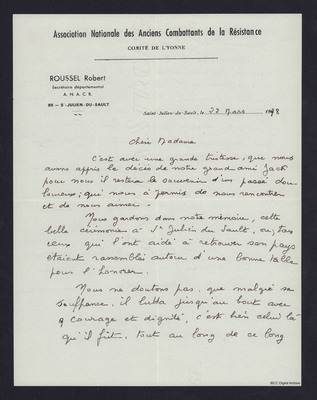 Association Nationale des Anciens Combattants de la Résistance
COMITÉ DE L'YONNE
ROUSSEL Robert
Secrétaire départemental
A. N. A. C. R.
89 - St-JULIEN-DU-SAULT
Saint-Julien-du-Sault, le 22 Mars 198
Chère Madame
C'est avec une grande tristesse, que nous
avons appris le décès de notre grand ami Jack
pour nous il restera le souvenir d'un passé dou-
loureux, qui nous a permis de nous rencontrer
et de nous aimer.
Nous gardons dans notre mémoire, cette
belle cérémonie à St Julien du Sault, où, tous
ceux qui l'ont aidé à retrouver son pays
étaient rassemblés autour d'une bonne table
pour l'honorer.
Nous ne doutons pas, que malgré sa
souffrance, il lutta jusqu'au bout avec
courage et dignité, c'est bien celui là
qu'il fût, tout au long de ce long